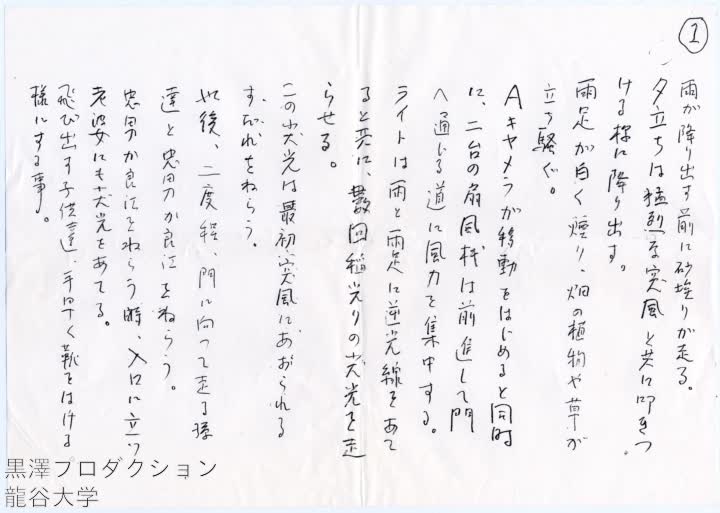 1
雨が降り出す前に砂埃りが走る。
夕立ちは猛烈な突風と共に叩きつ
ける様に降り出す。
雨足が白く煙り、畑の植物や草が
立ち騒ぐ。
Aキャメラが移動をはじめると同時
に、二台の扇風機は前進して門
へ通じる道に風力を集中する。
ライトは雨と雨足に逆光線をあて
ると共に、数回稲光りの光を走
らせる。
この光は最初、突風にあおられる
すだれをねらう。
以後、二度程、門に向って走る様
達と忠男が良江をねらう。
忠男が良江をねらう時、入口に立つ
老婆にも光をあてる。
飛び出す子供達、手早く靴をはける
様にする事。
黒澤プロダクション
龍谷大学